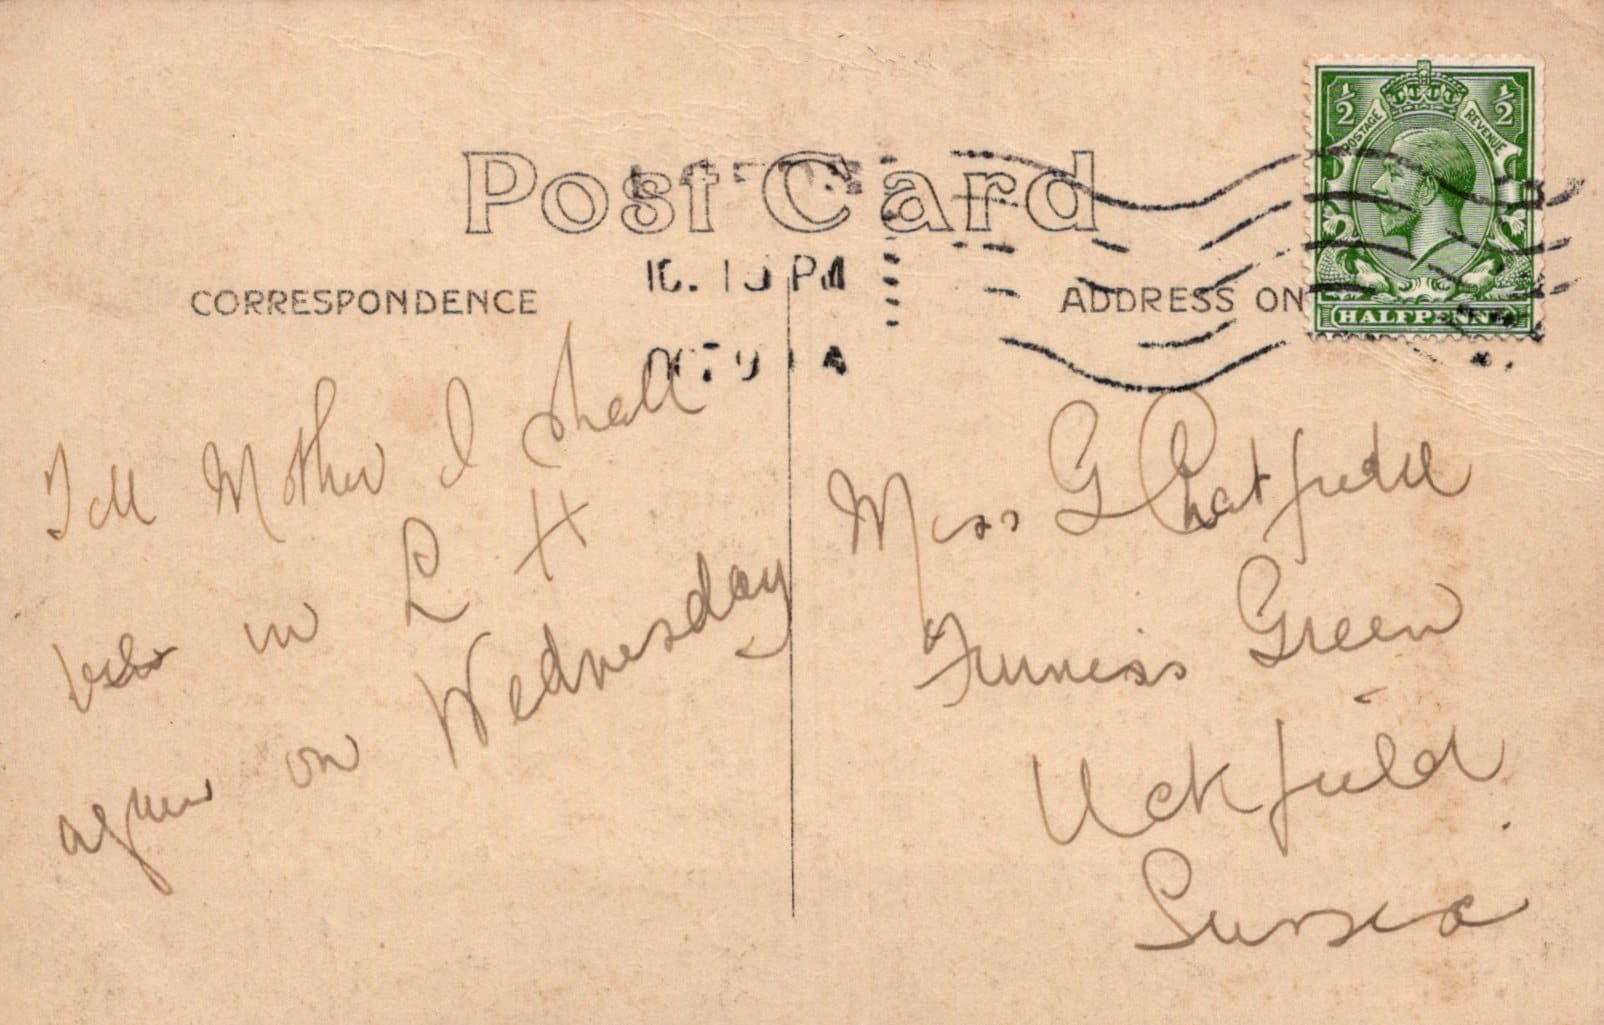 Post Card
CORRESPONDENCE
ADDRESS ON
1/2 POSTAGE REVENUE 1/2
HALFPENNY
PM
OCT 9 14
Tell Mother I shall
be in L H
again on Wednesday
Miss G Chatfield
Furness Green
Uckfield
Sussex